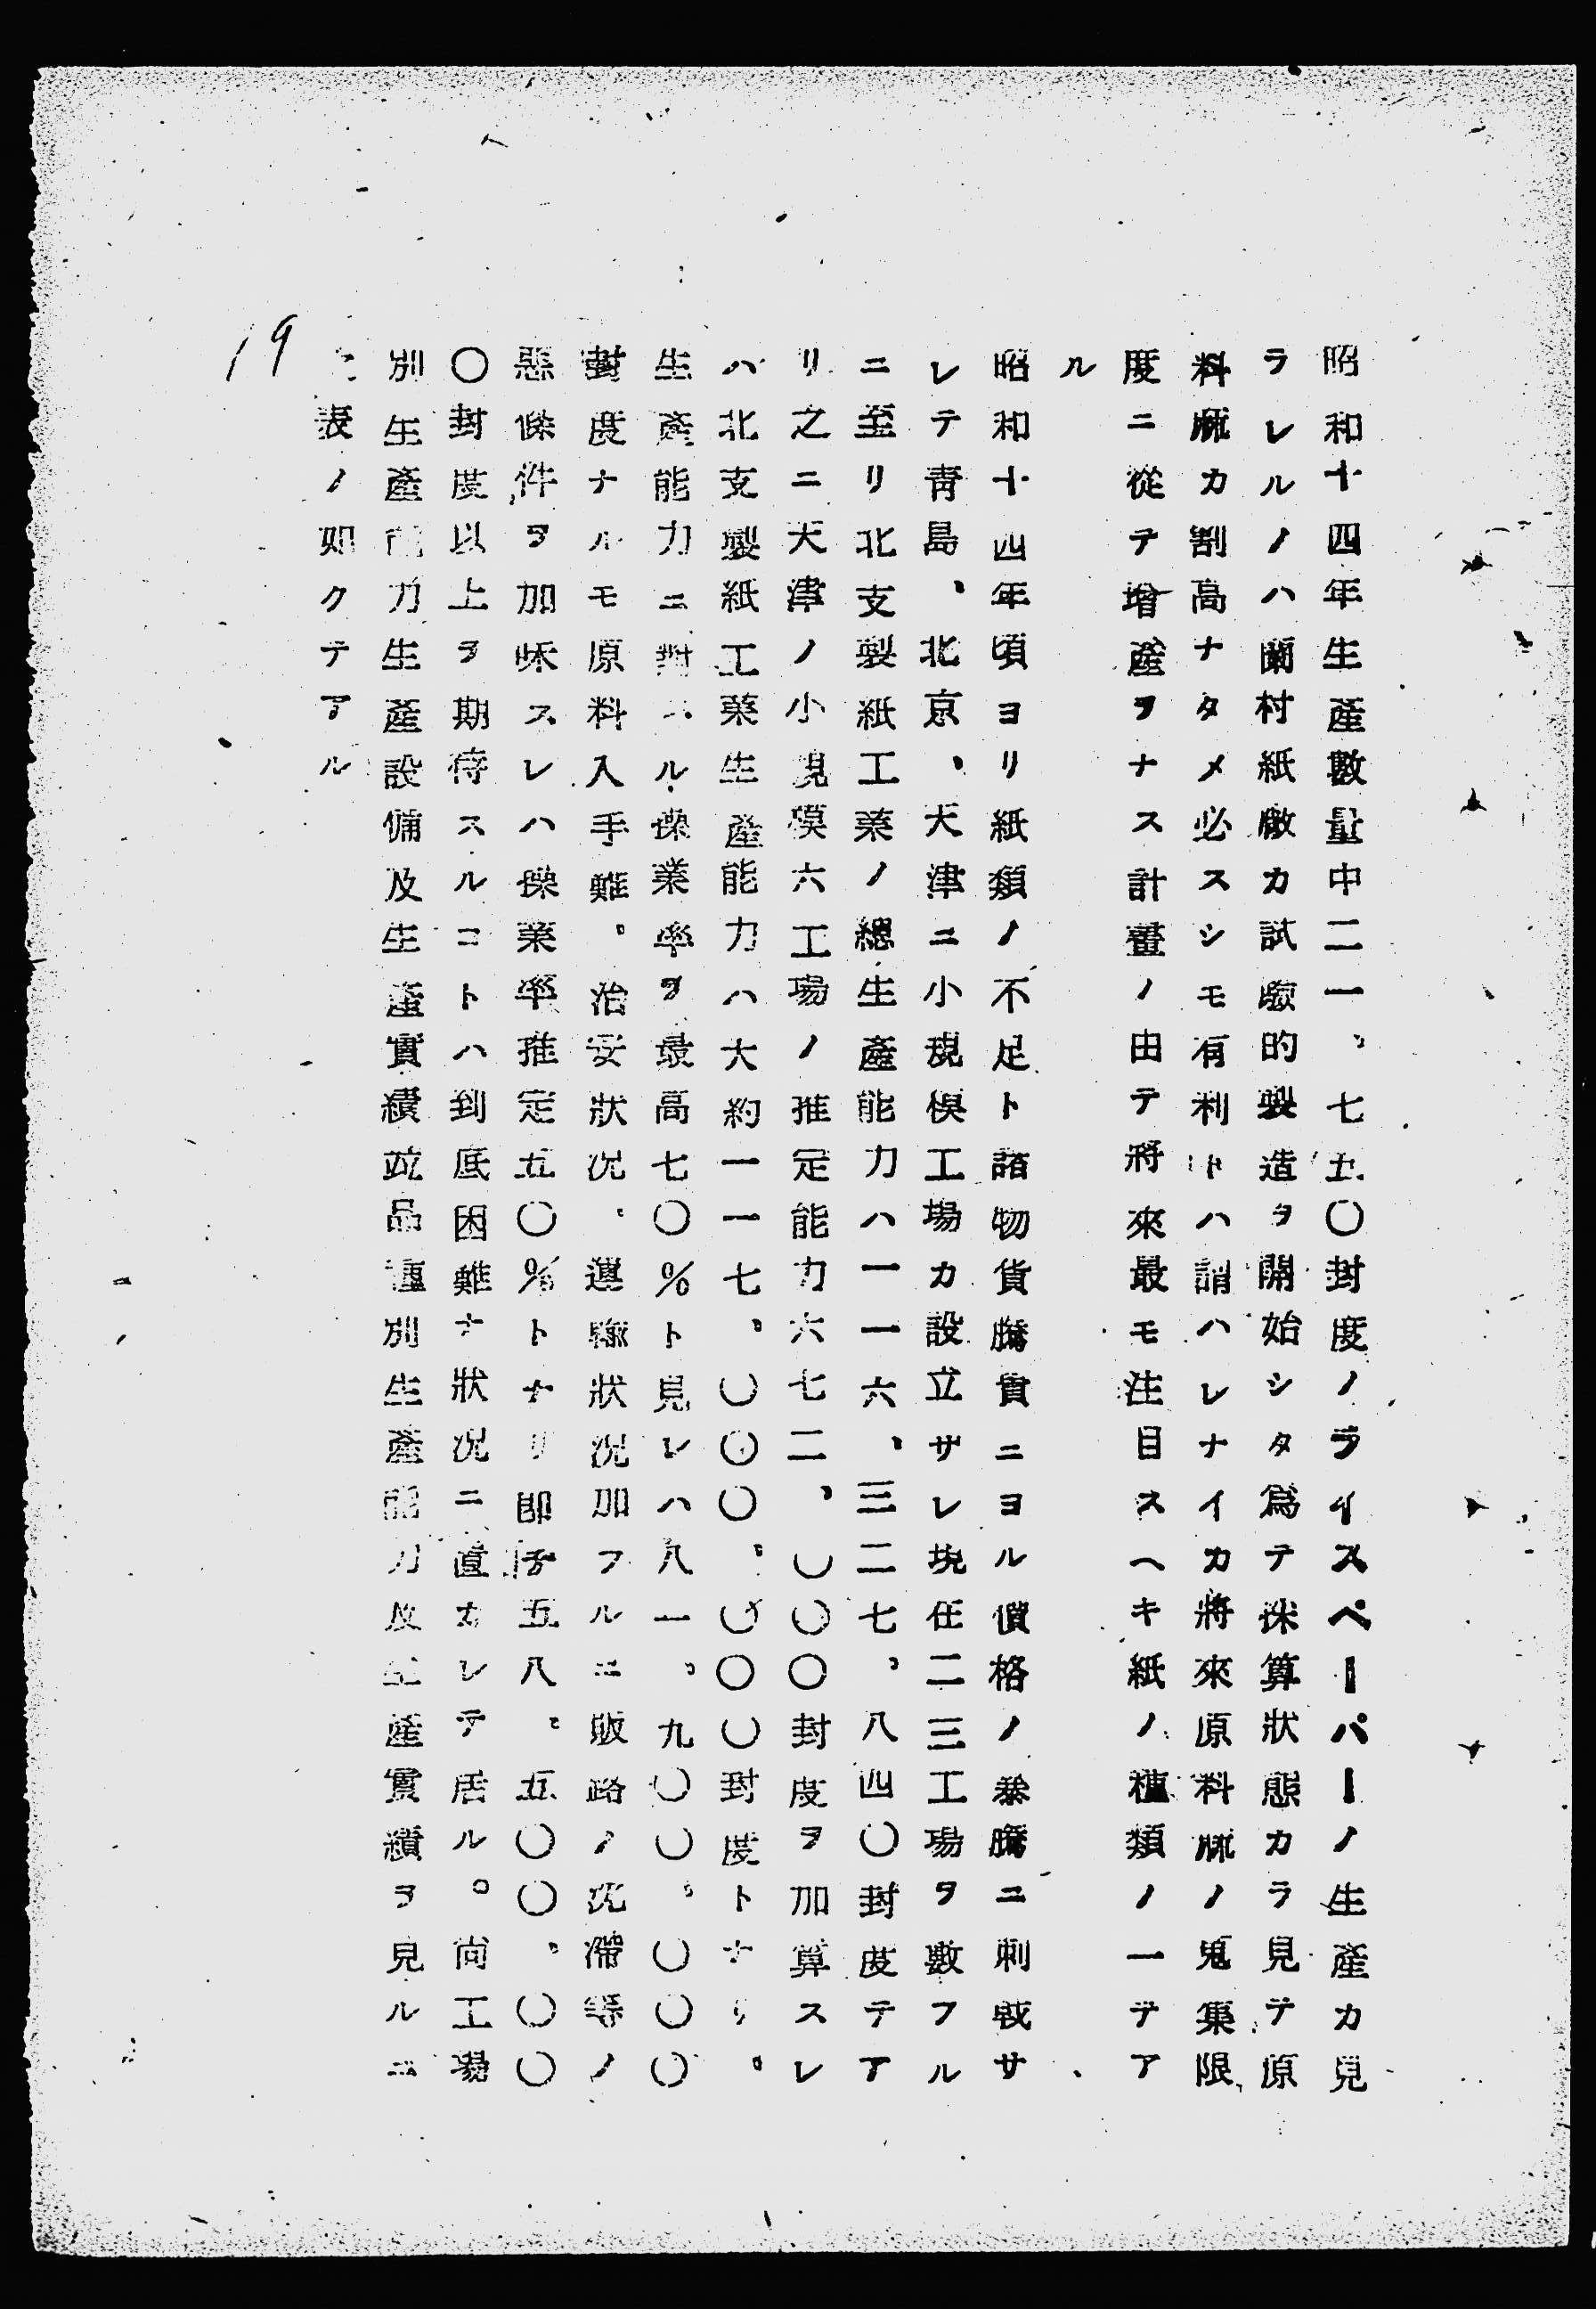 昭和十四年生產數量中二一、七五〇封度ノライスペーパーノ生產カ見
ラレルノハ蘭村紙廠カ試驗的製造ヲ開始シタ爲テ採算狀態カラ見テ原
料麻カ割高ナタメ必スシモ有利トハ謂ハレナイカ將來原料麻ノ蒐集限
度ニ從テ增產ヲナス計畫ノ由テ將來最モ注目スヘキ紙ノ種類ノ一テア
ル
昭和十四年頃ヨリ紙類ノ不足ト諸物貨騰貴ニヨル價格ノ暴騰ニ刺戟サ
レテ青島、北京、天津ニ小規模工場カ設立サレ現在二三工場ヲ數フル
ニ至リ北支製紙工業ノ總生產能力ハ一一六、三二七、八四〇封度テア
リ之ニ天津ノ小規模六工場ノ推定能力六七二、〇〇〇封度ヲ加算スレ
ハ北支製紙工業生產能力ハ大約一一七、〇〇〇、〇〇〇封度トナリ、
生產能力ニ對スル操業率ヲ最高七〇%ト見レハ八一、九〇〇、〇〇〇
封度ナルモ原料入手難、治安狀況、運輸狀況加フルニ販路ノ沈滯等ノ
惡條件ヲ加味スレハ操業率推定五〇%トナリ卽チ五八、五〇〇、〇〇
〇封度以上ヲ期待スルコトハ到底困難ナ狀況ニ直カレテ居ル。尙工場
別生產能力生產設備及生產實績竝品種別生產能力及生產實績ヲ見ルニ
表ノ如クテアル
19